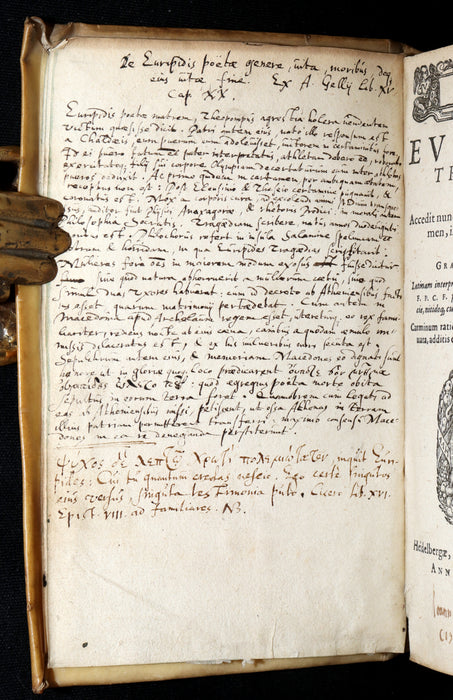 De Euripidis poëtæ genere, vita, moribus, deq
eius vitæ fine. Ex A. Gellij lib. XV.
Cap. XX.
Euripidis poetæ matrem, Theopompus agrestia holera vendentem
victum quæsisse dicit. Patri autem eius, nato illo responsum est
à Chaldæis, eum puerum cum adolevisset, victorem in certaminibus fore
Id ei puero fatum esse pater interpretatus, athletam debere eo, roborato
exercitatoq filij sui corpore Olympiam decertaturum eum inter athletas
pueros deduxit. Ac primo quidem in certamen per ambiguam ætatem
receptus non est: Post Eleusinio & Theseo certamine pugnavit, &
coronatus est. Mox à corporis cura ad excolendi animi studium transgres
sus, auditor fuit physici Anaxagoræ, & rhetoris Prodici, in morali autem
philosophia Socratis. Tragœdiam scribere natus annos duodeviginti
adortus est. Philochorus refert in insula Salamine speluncam esse
tetram & horridam, in qua Euripides tragœdias scriptitarit.
Mulieres fere oes in maiorem modum exosus fuisse dicitur
sive quod natura abhorruerit a mulierum cœtu, sive quod
simul duas uxores habuerat, cum id decreto ab Atheniensibus facto
ius esset, quarum matrimonij pertædebat. Cum autem in
Macedonia apud Archelaum regem esset, utereturq eo rex fami-
liariter, rediens nocte ab eius cœna, canibus a quodam æmulo im-
missis dilaceratus est, & ex his vulneribus mors secuta est.
Sepulchrum autem eius, & memoriam Macedones eo dignati sunt
honore ut in gloriæ quoq loco prædicarent
quod egregius poëta morte obita
sepultus in eorum terra foret. Quamobrem cum legati ad
eos ab Atheniensibus missi petissent, ut ossa Athenas in terram
illius patriam permitterent transferri: maximo consensu Mace-
dones in ea re deneganda perstiterunt.
Ψῦχος δὲ λεπτῷ χρωτὶ πολεμιώτατον, inquit Euri-
pides: Cui tu quantum credas nescio. Ego certe singulos
eius versus, singula testimonia puto. Cicero lib. XVI.
Epist. VIII. ad familiares. NB.
EV
Accedit nunc
men, i
GRA
Latinam interpr
F. P. C. F.
Carminum ratio
additis e
Heidelbergæ,
ANN